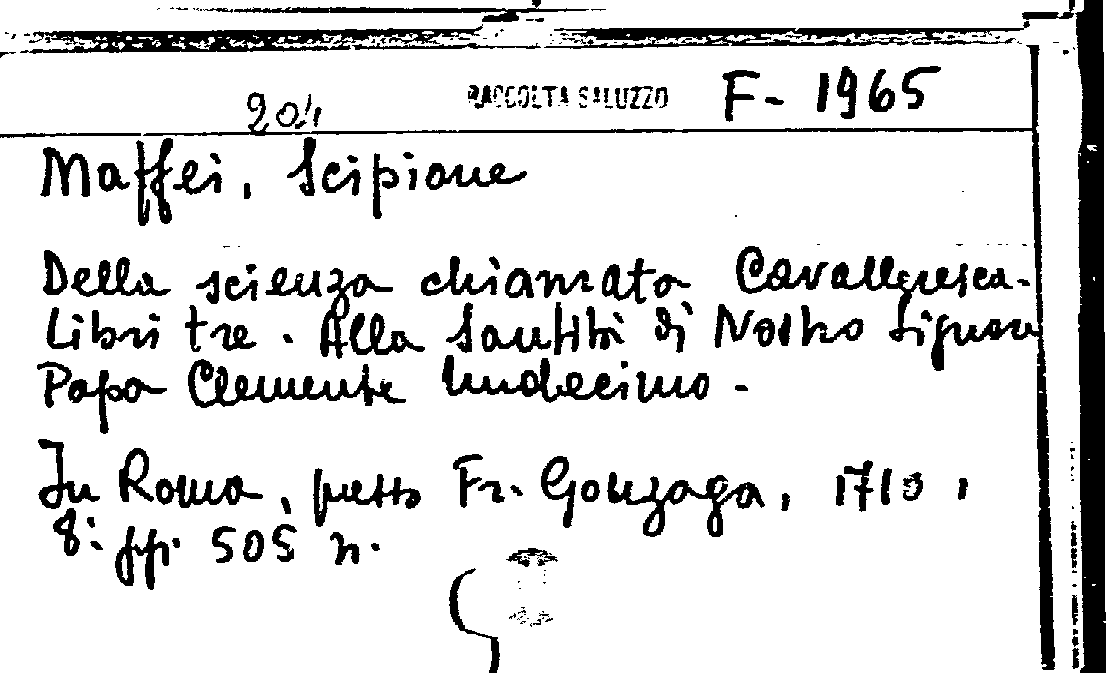 204 RACCOLTA SALUZZO F- 1965
Maffei, Scipione
Della scienza chiamata Cavalleresca.
Libri tre. Alla Santità di Nostro Signore
Papa Clemente Undecimo -
In Roma, presso Fr. Gonzaga, 1710,
8: pp. 505 n.